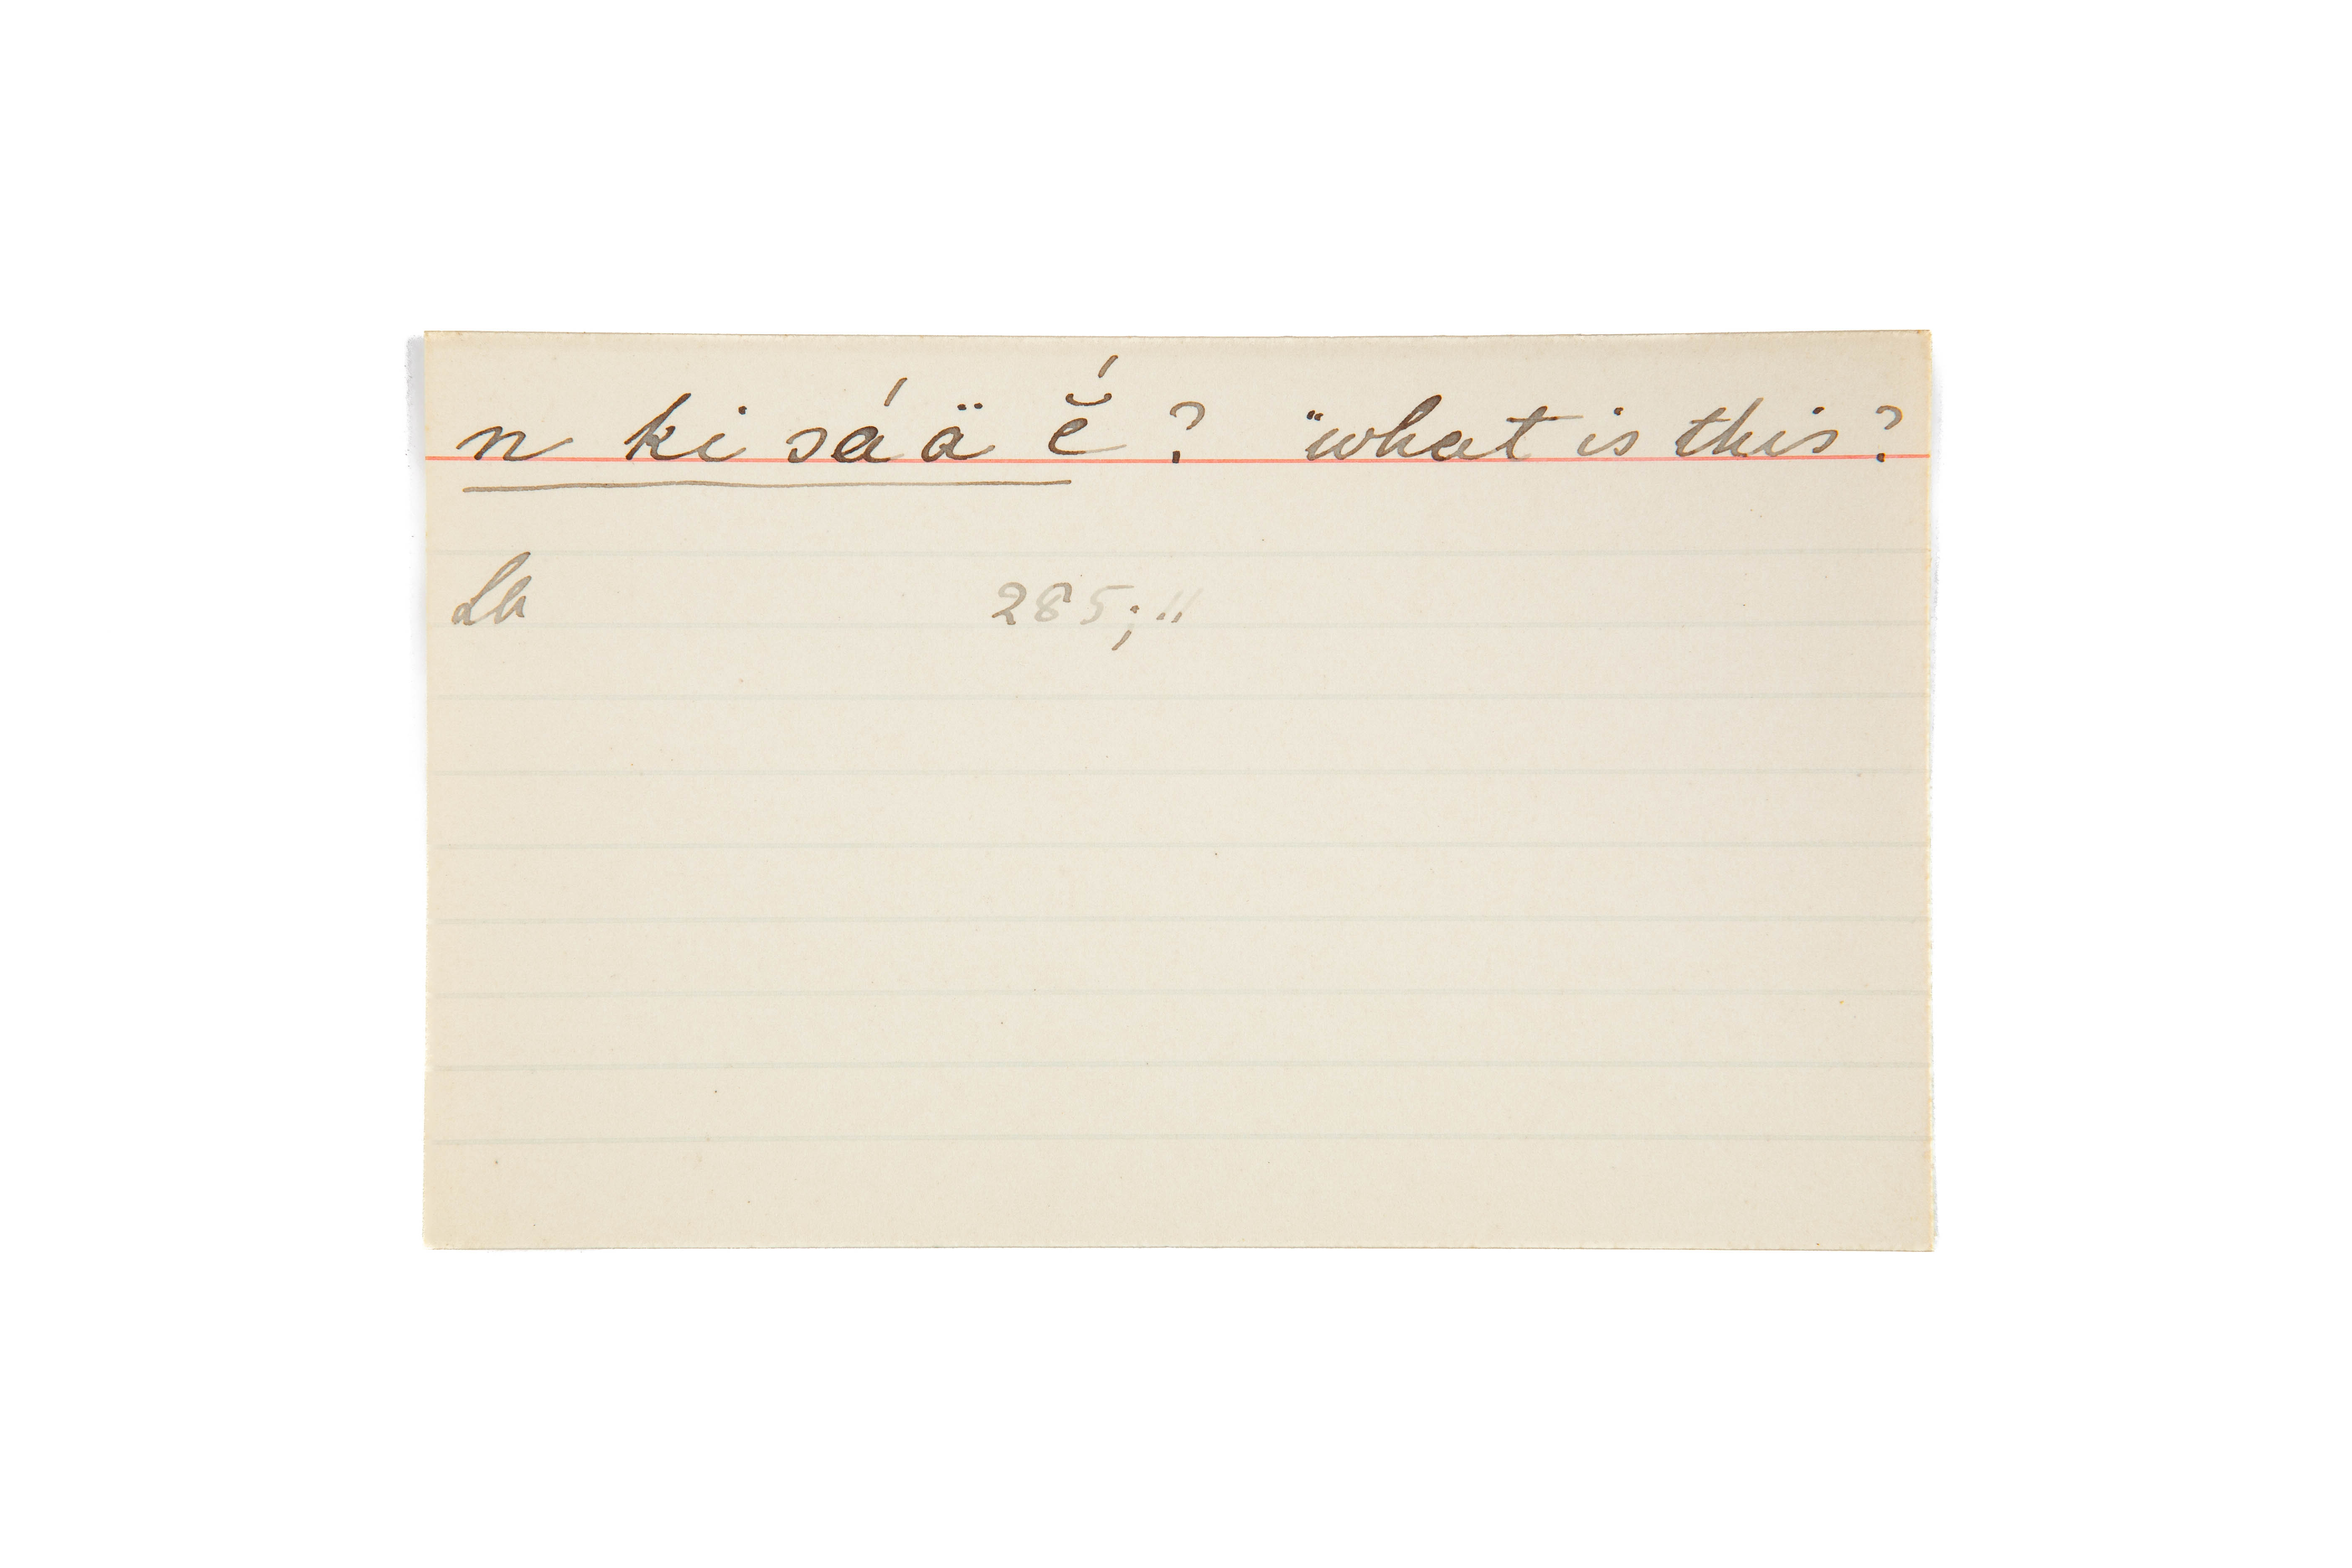 n ki sá ä ĕ́ ? "what is this?
Lb 285; 11